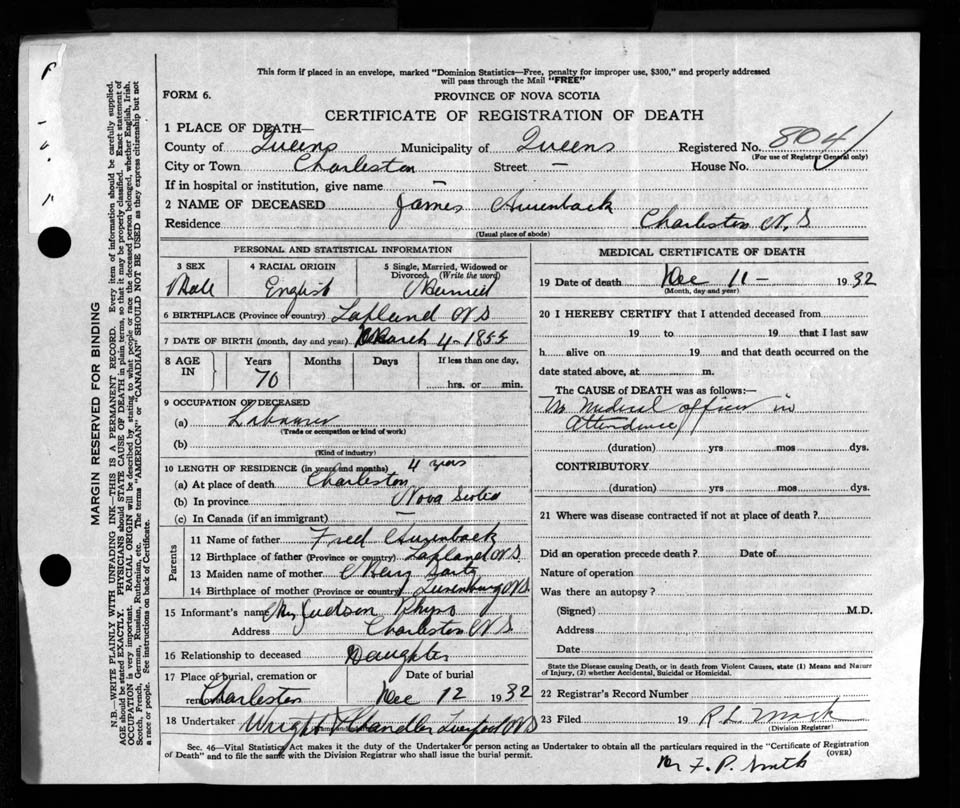 This form if placed in an envelope, marked "Dominion Statistics—Free, penalty for improper use, $300," and properly addressed
will pass through the Mail "FREE"
FORM 6.
PROVINCE OF NOVA SCOTIA
CERTIFICATE OF REGISTRATION OF DEATH
1 PLACE OF DEATH—
County of Queens Municipality of Queens Registered No. 8041
(For use of Registrar General only)
City or Town Charleston Street — House No.
If in hospital or institution, give name —
2 NAME OF DECEASED James
Residence Charleston N.S
(Usual place of abode)
PERSONAL AND STATISTICAL INFORMATION
3 SEX 4 RACIAL ORIGIN 5 Single, Married, Widowed or
Divorced. (Write the word)
Male English Married
6 BIRTHPLACE (Province or country) Lapland N.S
7 DATE OF BIRTH (month, day and year) March 4 - 1855
8 AGE IN Years Months Days If less than one day,
70 hrs. or min.
9 OCCUPATION OF DECEASED
(a) Labourer
(Trade or occupation or kind of work)
(b)
(Kind of industry)
10 LENGTH OF RESIDENCE (in years and months) 4 years
(a) At place of death Charleston
(b) In province Nova Scotia
(c) In Canada (if an immigrant) —
Parents
11 Name of father Fred
12 Birthplace of father (Province or country) Lapland N.S.
13 Maiden name of mother Mary
14 Birthplace of mother (Province or country) Lunenburg N.S.
15 Informant's name Mrs Judson
Address Charleston N S
16 Relationship to deceased Daughter
17 Place of burial, cremation or removal Date of burial
Charleston Dec 12 1932
18 Undertaker Wright & Chandler Liverpool N S
MEDICAL CERTIFICATE OF DEATH
19 Date of death Dec 11 - 1932
(Month, day and year)
20 I HEREBY CERTIFY that I attended deceased from
19 to 19 that I last saw
h alive on 19 and that death occurred on the
date stated above, at m.
The CAUSE of DEATH was as follows:—
No Medical officer in
attendance
(duration) yrs mos dys.
CONTRIBUTORY
(duration) yrs. mos. dys.
21 Where was disease contracted if not at place of death?
Did an operation precede death? Date of
Nature of operation
Was there an autopsy?
(Signed) M.D.
Address
Date
State the Disease causing Death, or in death from Violent Causes, state (1) Means and Nature
of Injury, (2) whether Accidental, Suicidal or Homicidal.
22 Registrar's Record Number
23 Filed 19 R L Mack
(Division Registrar)
Sec. 46—Vital Statistics Act makes it the duty of the Undertaker or person acting as Undertaker to obtain all the particulars required in the "Certificate of Registration
of Death" and to file the same with the Division Registrar who shall issue the burial permit. (OVER)
Per F. P. Smith
MARGIN RESERVED FOR BINDING
N.B.—WRITE PLAINLY WITH UNFADING INK—THIS IS A PERMANENT RECORD. Every item of information should be carefully supplied.
AGE should be stated EXACTLY. PHYSICIANS should STATE CAUSE OF DEATH in plain terms, so that it may be properly classified. Exact statement of
OCCUPATION is very important. RACIAL ORIGIN will be described by stating to what people or race the deceased person belonged, whether English, Irish,
Scotch, French, German, Russian, Ruthenian, etc. The terms "AMERICAN" or "CANADIAN" SHOULD NOT BE USED as they express citizenship but not
a race or people. See instructions on back of Certificate.